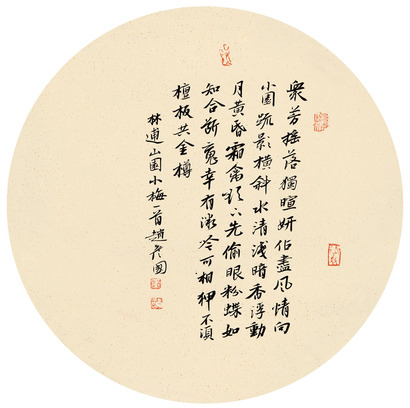 衆芳搖落獨暄妍佔盡風情向
小園疏影橫斜水清淺暗香浮動
月黃昏霜禽欲下先偷眼粉蝶如
知合斷魂幸有微吟可相狎不須
檀板共金樽
林逋山園小梅一首趙彥國